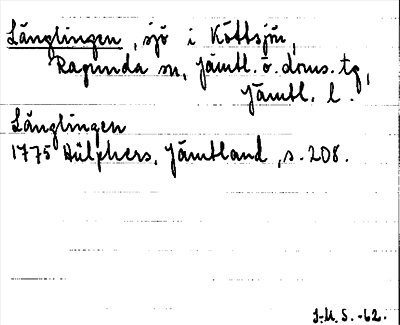 Långlingen, sjö i Köttsjön,
Ragunda sn, Jämtl. ö. doms. tg,
Jämtl. l.
Långlingen
1775 Hülphers, Jämtland, s. 208.
J-M. S. -62.